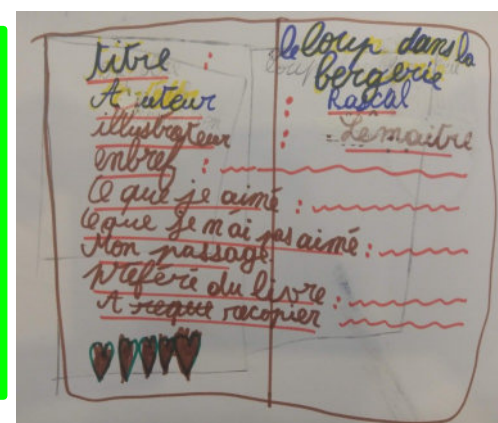 titre : le loup dans la
bergerie
Auteur : Rascal
illustrateur : Lemaitre
enbref :
Ce que je aimé :
Ce que Je n'ai pas aimé :
Mon passage
préféré du livre :
A recopier